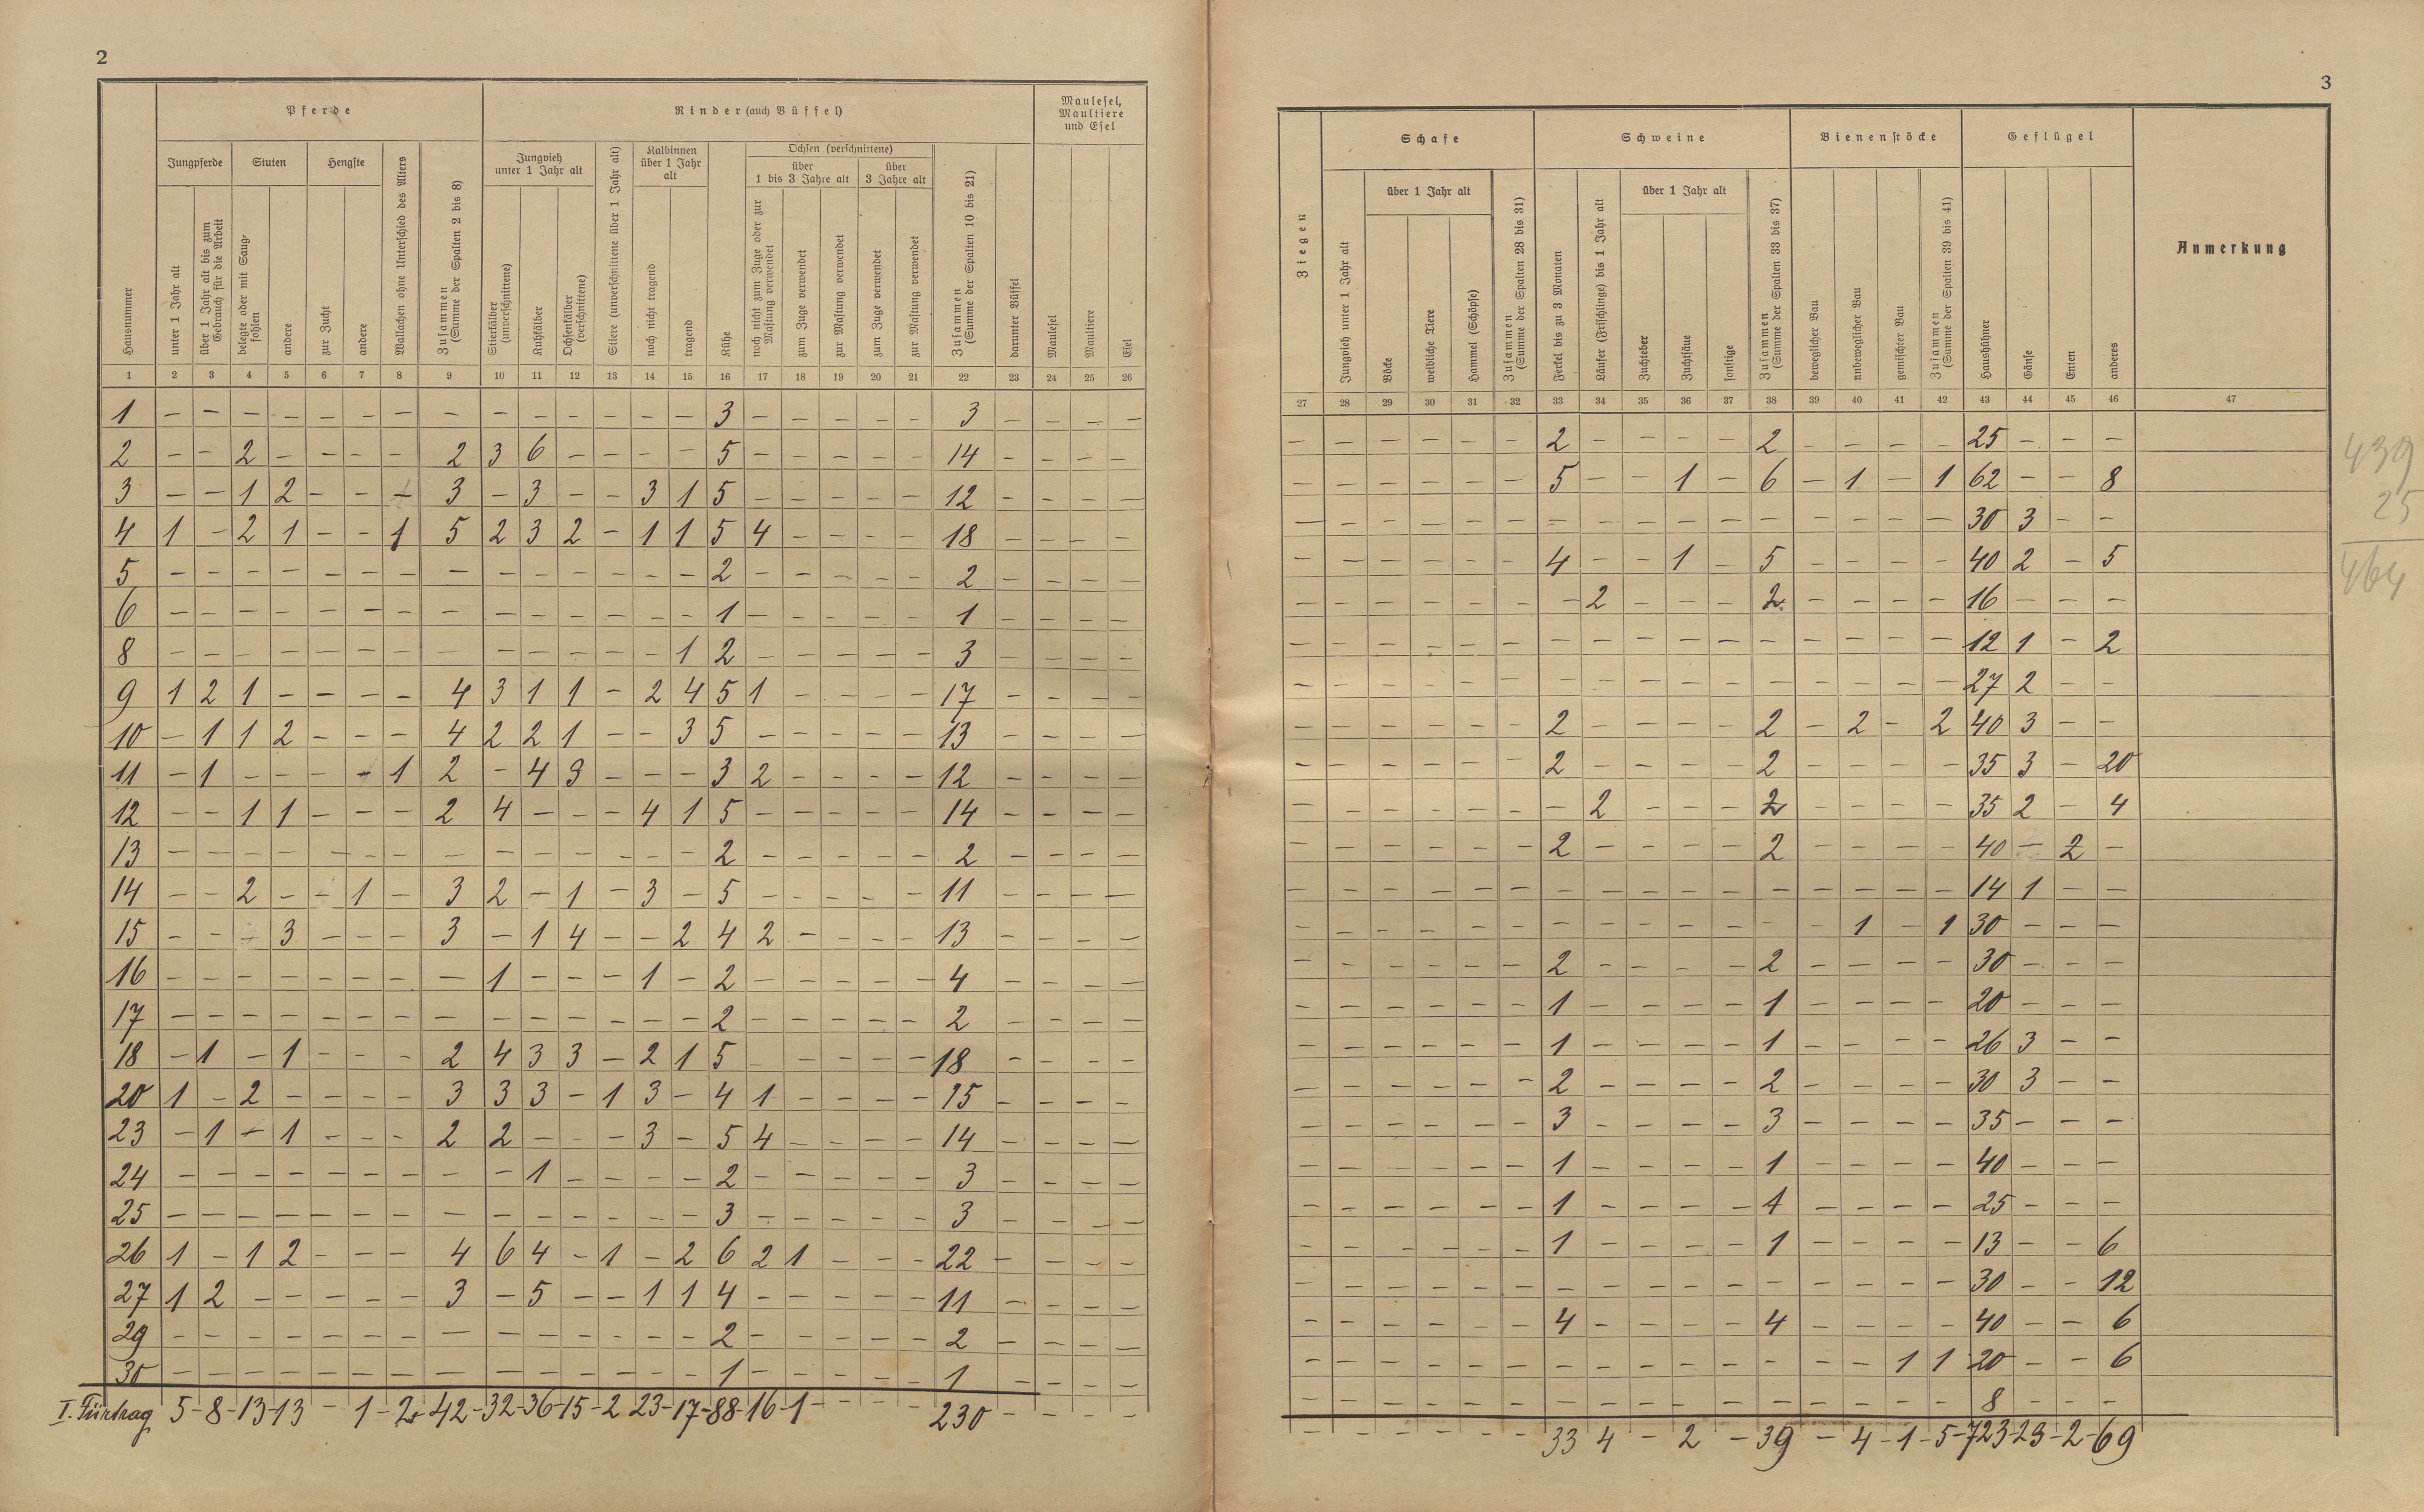 2
Pferde
Rinder (auch Büffel)
Maulesel, Maultiere und Esel
Jungpferde
Stuten
Hengste
Wallachen ohne Unterschied des Alters
Zusammen (Summe der Spalten 2 bis 8)
Jungvieh unter 1 Jahr alt
Stiere (unverschnittene über 1 Jahr alt)
Kalbinnen über 1 Jahr alt
Kühe
Ochsen (verschnittene)
über 1 bis 3 Jahre alt
über 3 Jahre alt
Zusammen (Summe der Spalten 10 bis 21)
darunter Büffel
Hausnummer
unter 1 Jahr alt
über 1 Jahr alt bis zum Gebrauch für die Arbeit
belegte oder mit Saug-fohlen
andere
zur Zucht
andere
Stierkälber (unverschnittene)
Kuhkälber
Ochsenkälber (verschnittene)
noch nicht tragend
tragend
noch nicht zum Zuge oder zur Mastung verwendet
zum Zuge verwendet
zur Mastung verwendet
zum Zuge verwendet
zur Mastung verwendet
Maulesel
Maultiere
Esel
1 2 3 4 5 6 7 8 9 10 11 12 13 14 15 16 17 18 19 20 21 22 23 24 25 26
1 – – – – – – – – – – – – – – 3 – – – – – 3 – – – –
2 – – 2 – – – – 2 3 6 – – – – 5 – – – – – 14 – – – –
3 – – 1 2 – – – 3 – 3 – – 3 1 5 – – – – – 12 – – – –
4 1 – 2 1 – – 1 5 2 3 2 – 1 1 5 4 – – – – 18 – – – –
5 – – – – – – – – – – – – – – 2 – – – – – 2 – – – –
6 – – – – – – – – – – – – – – 1 – – – – – 1 – – – –
8 – – – – – – – – – – – – – 1 2 – – – – – 3 – – – –
9 1 2 1 – – – – 4 3 1 1 – 2 4 5 1 – – – – 17 – – – –
10 – 1 1 2 – – – 4 2 2 1 – – 3 5 – – – – – 13 – – – –
11 – 1 – – – – 1 2 – 4 3 – – – 3 2 – – – – 12 – – – –
12 – – 1 1 – – – 2 4 – – – 4 1 5 – – – – – 14 – – – –
13 – – – – – – – – – – – – – – 2 – – – – – 2 – – – –
14 – – 2 – – 1 – 3 2 – 1 – 3 – 5 – – – – – 11 – – – –
15 – – – 3 – – – 3 – 1 4 – – 2 4 2 – – – – 13 – – – –
16 – – – – – – – – 1 – – – 1 – 2 – – – – – 4 – – – –
17 – – – – – – – – – – – – – – 2 – – – – – 2 – – – –
18 – 1 – 1 – – – 2 4 3 3 – 2 1 5 – – – – – 18 – – – –
20 1 – 2 – – – – 3 3 3 – 1 3 – 4 1 – – – – 15 – – – –
23 – 1 – 1 – – – 2 2 – – – 3 – 5 4 – – – – 14 – – – –
24 – – – – – – – – – 1 – – – – 2 – – – – – 3 – – – –
25 – – – – – – – – – – – – – – 3 – – – – – 3 – – – –
26 1 – 1 2 – – – 4 6 4 – 1 – 2 6 2 1 – – – 22 – – – –
27 1 2 – – – – – 3 – 5 – – 1 1 4 – – – – – 11 – – – –
29 – – – – – – – – – – – – – – 2 – – – – – 2 – – – –
30 – – – – – – – – – – – – – – 1 – – – – – 1 – – – –
I. Fürtrag 5 – 8 – 13 – 13 – 1 – 2 – 42 – 32 – 36 – 15 – 2 23 – 17 – 88 – 16 – 1 – – – – 230 – – – –
3
Ziegen
Schafe
Schweine
Bienenstöcke
Geflügel
Anmerkung
über 1 Jahr alt
über 1 Jahr alt
Jungvieh unter 1 Jahr alt
Böcke
weibliche Tiere
Hammel (Schöpse)
Zusammen (Summe der Spalten 28 bis 31)
Ferkel bis zu 3 Monaten
Läufer (Frischlinge) bis 1 Jahr alt
Zuchteber
Zuchtsäue
sonstige
Zusammen (Summe der Spalten 33 bis 37)
beweglicher Bau
unbeweglicher Bau
gemischter Bau
Zusammen (Summe der Spalten 39 bis 41)
Haushühner
Gänse
Enten
anderes
27 28 29 30 31 32 33 34 35 36 37 38 39 40 41 42 43 44 45 46 47
– – – – – – 2 – – – – 2 – – – – 25 – – –
– – – – – – 5 – – 1 – 6 – 1 – 1 62 – – 8
– – – – – – – – – – – – – – – – 30 3 – –
– – – – – – 4 – – 1 – 5 – – – – 40 2 – 5
– – – – – – – 2 – – – 2 – – – – 16 – – –
– – – – – – – – – – – – – – – – 12 1 – 2
– – – – – – – – – – – – – – – – 27 2 – –
– – – – – – 2 – – – – 2 – 2 – 2 40 3 – –
– – – – – – 2 – – – – 2 – – – – 35 3 – 20
– – – – – – – 2 – – – 2 – – – – 35 2 – 4
– – – – – – 2 – – – – 2 – – – – 40 – 2 –
– – – – – – – – – – – – – – – – 14 1 – –
– – – – – – – – – – – – – 1 – 1 30 – – –
– – – – – – 2 – – – – 2 – – – – 30 – – –
– – – – – – 1 – – – – 1 – – – – 20 – – –
– – – – – – 1 – – – – 1 – – – – 26 3 – –
– – – – – – 2 – – – – 2 – – – – 30 3 – –
– – – – – – 3 – – – – 3 – – – – 35 – – –
– – – – – – 1 – – – – 1 – – – – 40 – – –
– – – – – – 1 – – – – 1 – – – – 25 – – –
– – – – – – 1 – – – – 1 – – – – 13 – – 6
– – – – – – – – – – – – – – – – 30 – – 12
– – – – – – 4 – – – – 4 – – – – 40 – – 6
– – – – – – – – – – – – – – 1 1 20 – – 6
– – – – – – – – – – – – – – – – 8 – – –
– – – – – – 33 4 – 2 – 39 – 4 – 1 – 5 – 723 – 23 – 2 – 69
439
25
464